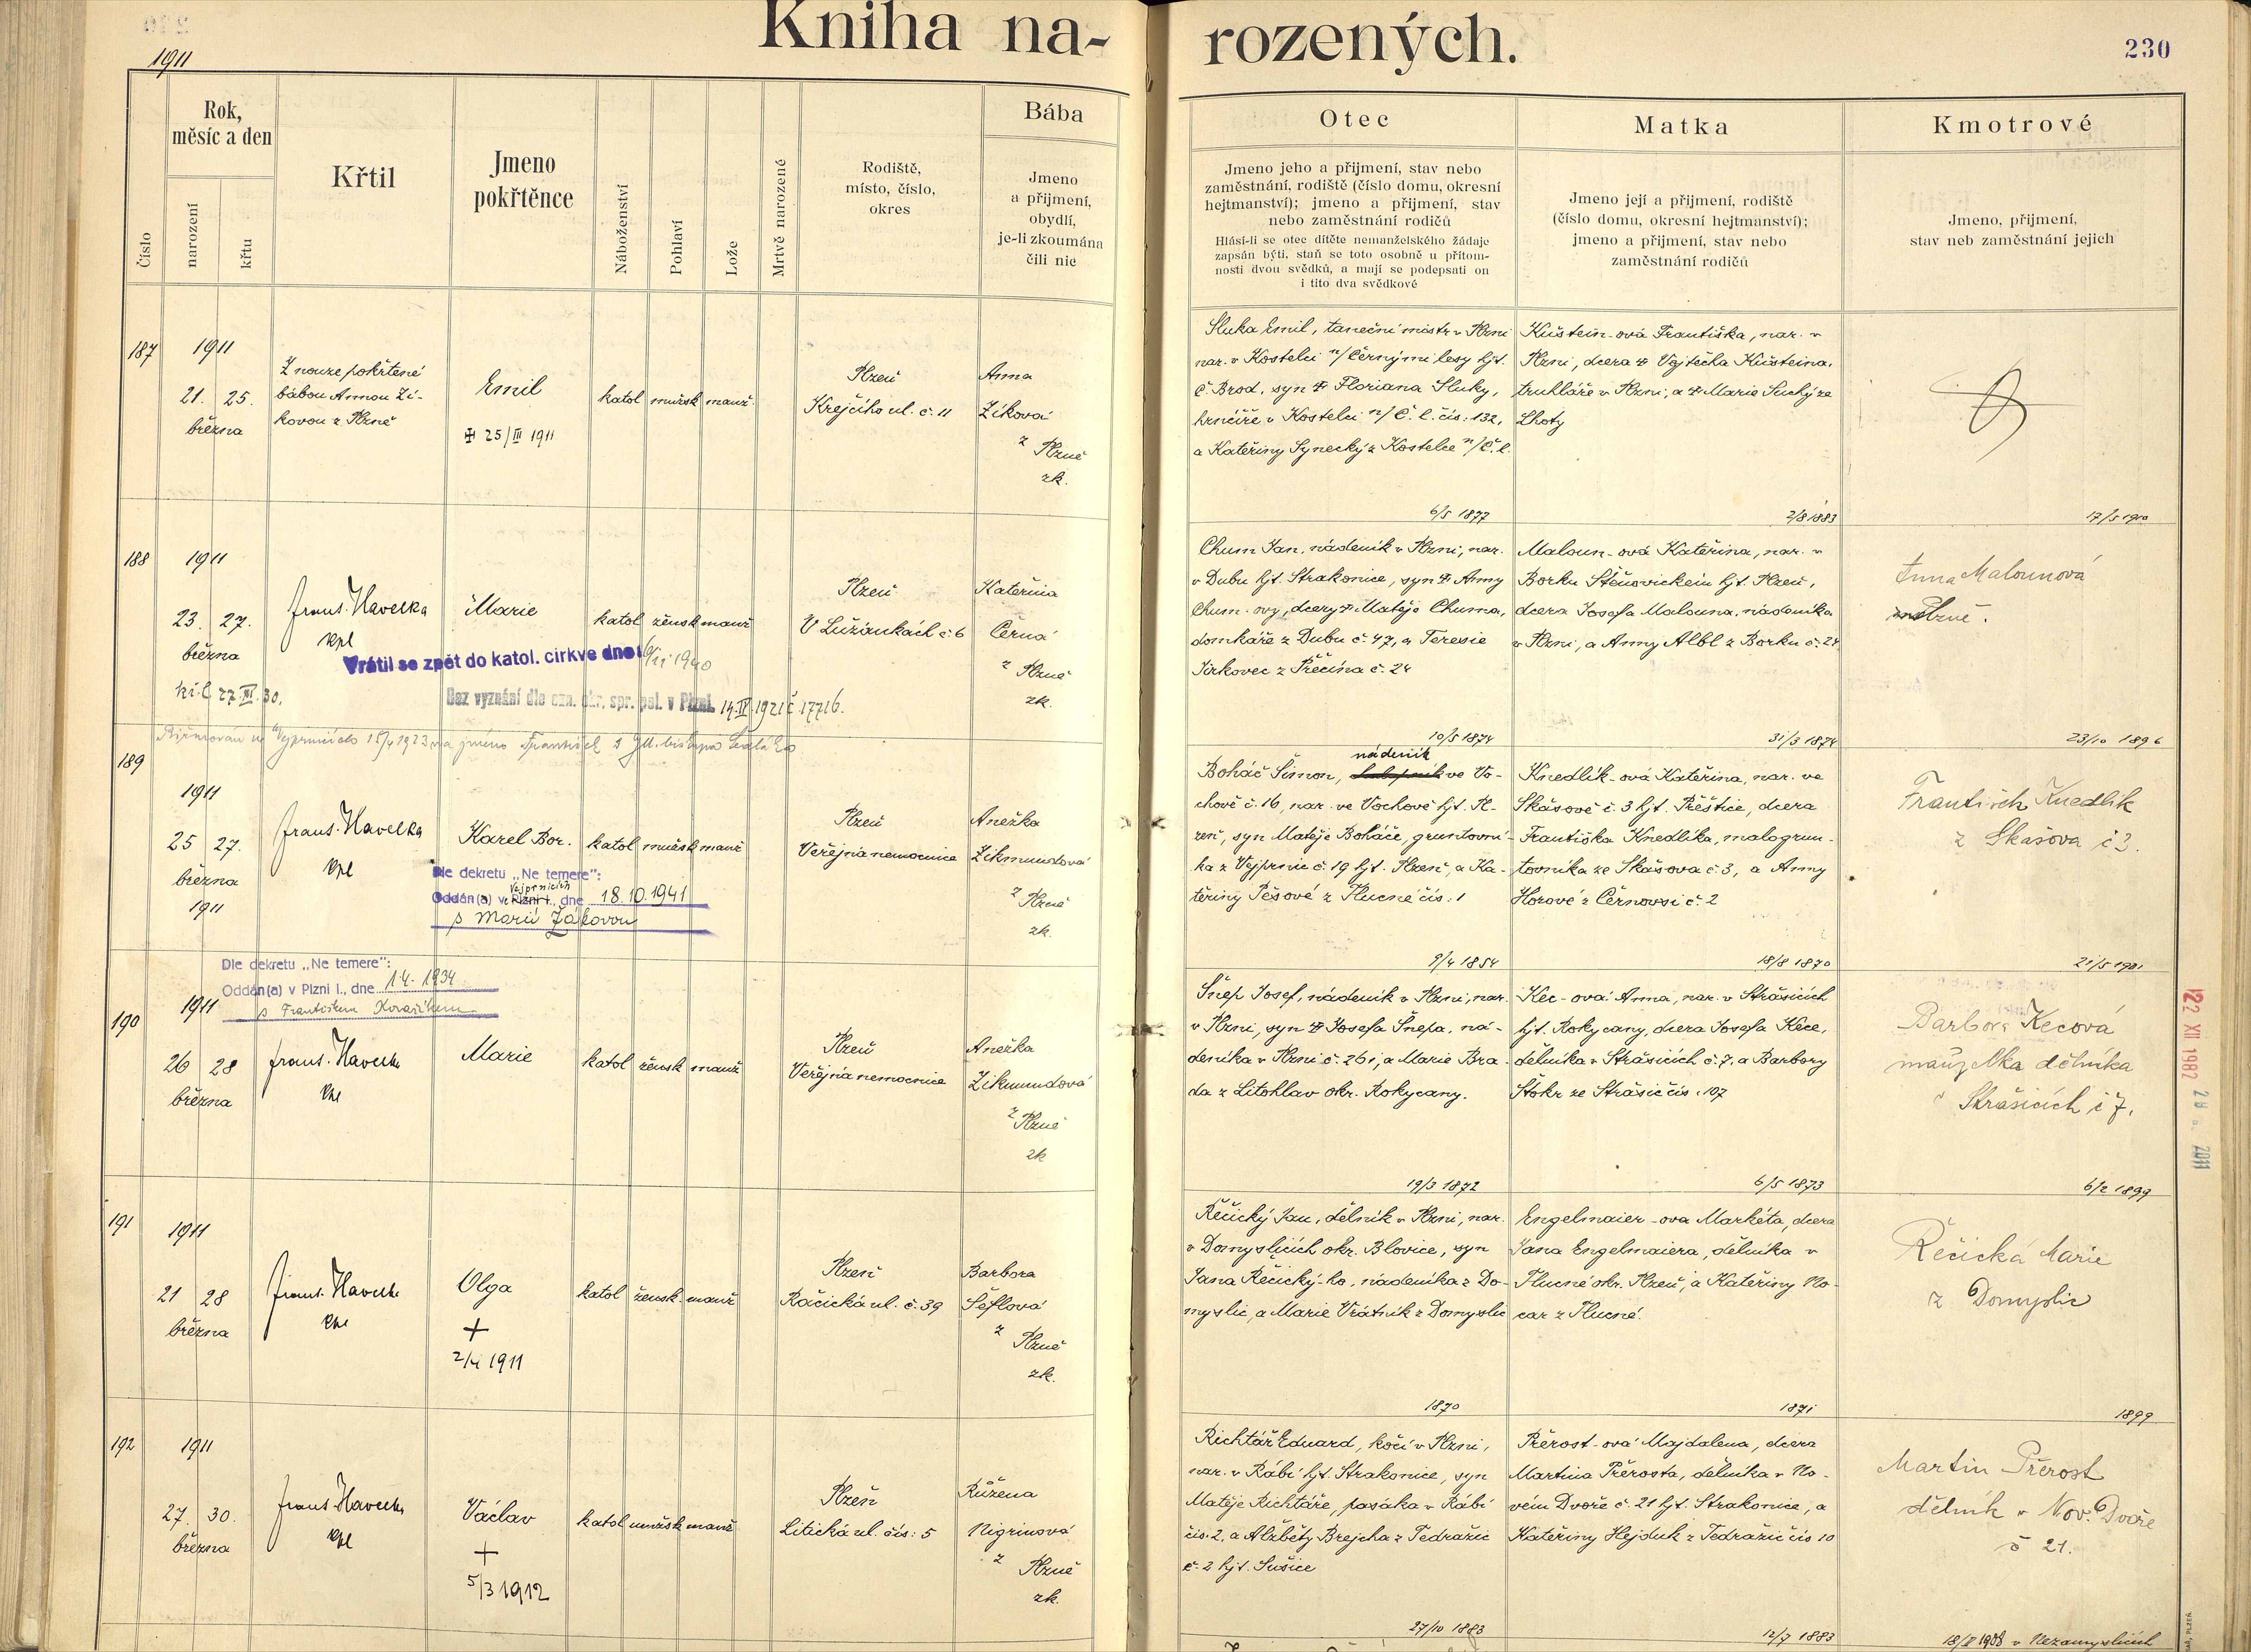 Kniha na-
rozených.
230
1911
Číslo
Rok,
měsíc a den
narození
křtu
Křtil
Jmeno
pokřtěnce
Náboženství
Pohlaví
Lože
Mrtvě narozené
Rodiště,
místo, číslo,
okres
Bába
Jmeno
a přijmení,
obydlí,
je-li zkoumána
čili nic
Otec
Jmeno jeho a přijmení, stav nebo
zaměstnání, rodiště (číslo domu, okresní
hejtmanství); jmeno a přijmení, stav
nebo zaměstnání rodičů
Hlásí-li se otec dítěte nemanželského žádaje
zapsán býti, staň se toto osobně u přítom-
nosti dvou svědků, a mají se podepsati on
i tito dva svědkové
Matka
Jmeno její a přijmení, rodiště
(číslo domu, okresní hejtmanství);
jmeno a přijmení, stav nebo
zaměstnání rodičů
Kmotrové
Jmeno, přijmení,
stav neb zaměstnání jejich
187
1911
21. 25.
března
Z nouze pokřtěné
bábou Annou Zí-
kovou z Plzně
Emil
25/III 1911
katol mužsk manž.
Plzeň
Krejčího ul. č. 11
Anna
Zíková
z Plzně
zk.
Sluka Emil, taneční mistr v Plzni
nar. v Kostelci n/Černými lesy hjt.
Č. Brod, syn Floriana Sluky,
hrnčíře v Kostelci n/Č. l. čís: 132,
a Kateřiny Synecký z Kostelce n/Č. l.
6/5 1877
Kuštein-ová Františka, nar. v
Plzni, dcera Vojtěcha Kušteina,
truhláře v Plzni, a Marie Suchý ze
Lhoty
2/8 1883
17/5 1910
188
1911
23. 27.
března
Frant. Havelka
kpl
Marie
katol žensk manž
Plzeň
V Lužánkách č. 6
Kateřina
Černá
z Plzně
zk.
Vrátil se zpět do katol. církve dne: 1940
Bez vyznání dle ozn. okr. spr. pol. v Plzni 14.IV.1921 č 17716.
Chum Jan, nádeník v Plzni, nar.
v Dubu hjt. Strakonice, syn Anny
Chum-ovy, dcery Matěje Chuma,
domkáře z Dubu č. 47, a Teresie
Jirkovec z Přečína č. 24
10/5 1874
Maloun-ová Kateřina, nar. v
Borku Štěnovickém hjt. Plzeň,
dcera Josefa Malouna, nádeníka
v Plzni, a Anny Albl z Borku č. 24
31/3 1874
Anna Malounová
Plzně.
23/10 1896
189
1911
25 27.
března
1911
Frant. Havelka
kpl
Karel Bor.
katol mužsk manž
Plzeň
Veřejná nemocnice
Anežka
Zikmundová
z Plzně
zk.
Dle dekretu „Ne temere":
Vejprnicích
Oddán(a) v Plzni I., dne 18.10.1941
s Marií Žákovou
nádeník
Boháč Šimon, ve Vo-
chově č. 16, nar. ve Vochově hjt. Pl-
zeň, syn Matěje Boháče, gruntovní-
ka z Vejprnic č. 19 hjt. Plzeň, a Ka-
teřiny Pěšové z Plucné čís: 1
9/4 1854
Knedlík-ová Kateřina, nar. ve
Skášově č. 3 hjt. Přeštice, dcera
Františka Knedlíka, malogrun-
tovníka ze Skášova č. 3, a Anny
Horové z Černovsi č. 2
18/8 1870
František Knedlík
z Skašova č 3.
21/5 1901
190
1911
26 28
března
Dle dekretu „Ne temere":
Oddán(a) v Plzni I., dne 1.4. 1934
s Františkem Kovaříkem
Frant. Havelka
kpl
Marie
katol žensk manž
Plzeň
Veřejná nemocnice
Anežka
Zikmundová
z Plzně
zk
Šnep Josef, nádeník v Plzni, nar.
v Plzni, syn Josefa Šnepa, ná-
deníka v Plzni č. 261, a Marie Bra-
da z Litohlav okr. Rokycany.
19/3 1872
Kec-ová Anna, nar. v Strašicích
hjt. Rokycany, dcera Josefa Kece,
dělníka v Strašicích č. 7, a Barbory
Štokr ze Strašic čís. 107
6/5 1873
Barbora Kecová
manželka dělníka
v Strašicích č 7.
6/2 1899
22 XII 1982
2011
191
1911
21 28
března
Frant. Havelka
kpl
Olga
2/4 1911
katol žensk. manž
Plzeň
Račická ul. č. 39
Barbora
Šeflová
z Plzně
zk.
Řečický Jan, dělník v Plzni, nar.
v Domyslicích okr. Blovice, syn
Jana Řečický-ho, nádeníka z Do-
myslic, a Marie Vrátník z Domyslic
1870
Engelmaier-ova Markéta, dcera
Jana Engelmaiera, dělníka v
Plucné okr. Plzeň, a Kateřiny No-
car z Plucné.
1871
Řečická Marie
z Domyslic
1899
192
1911
27. 30.
března
Frant. Havelka
kpl
Václav
5/3 1912
katol mužsk manž
Plzeň
Litická ul. čís: 5
Růžena
Nigrinová
z Plzně
zk.
Richtář Eduard, kočí v Plzni,
nar. v Rábí hjt. Strakonice, syn
Matěje Richtáře, pasáka v Rábí
čís. 2, a Alžběty Brejcha z Tedražic
č. 2 hjt. Sušice
27/10 1883
Přerost-ová Majdalena, dcera
Martina Přerosta, dělníka v No-
vém Dvoře č. 21 hjt. Strakonice, a
Kateřiny Hejduk z Tedražic čís 10
12/7 1883
Martin Přerost
dělník v Nov. Dvoře
č 21.
1908 v Nezamyslicích